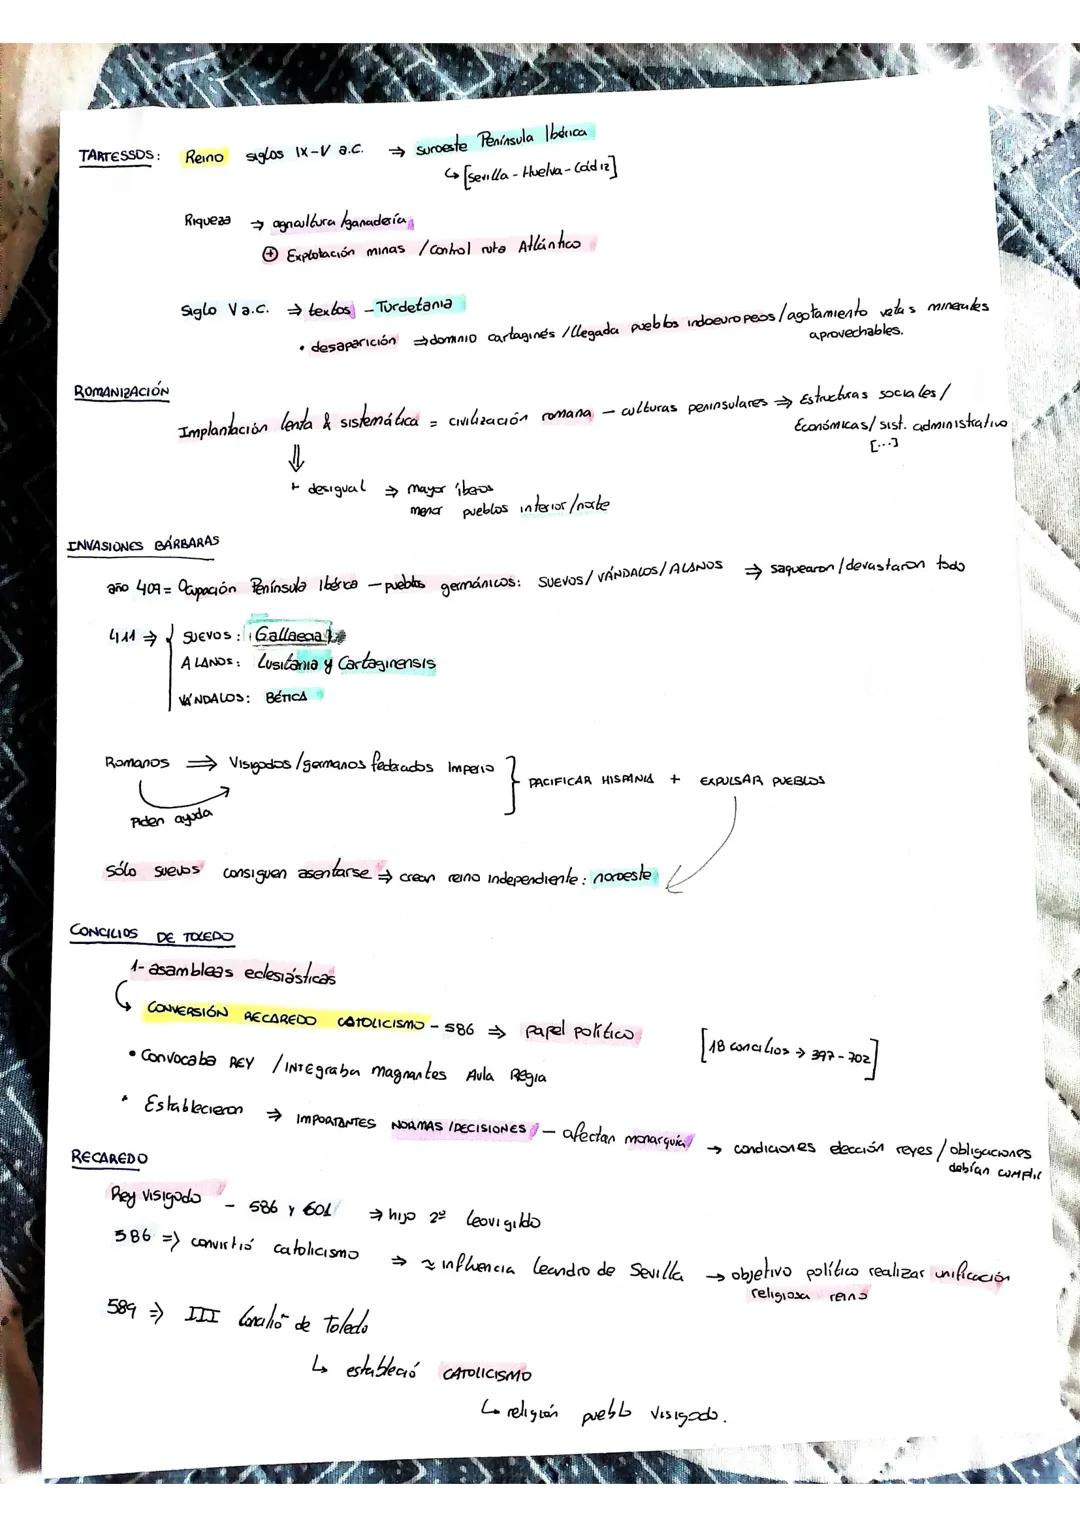 TARTESSOS: Reino siglos IX-V a.C. ⇒ suroeste Península Ibérica
↳ [Sevilla - Huelva - Cádiz]
Riqueza ⇒ agricultura/ganadería
⊕ Explotación minas / control ruta Atlántico
Siglo V a.C. ⇒ textos - Turdetania
• desaparición ⇒ dominio cartaginés / llegada pueblos indoeuropeos / agotamiento vetas minerales
aprovechables.
ROMANIZACIÓN
Implantación lenta & sistemática = civilización romana - culturas peninsulares ⇒ Estructuras sociales /
Económicas / sist. administrativo
[...]
⇓
+ desigual ⇒ mayor íberos
menor pueblos interior/norte
INVASIONES BÁRBARAS
año 409 = Ocupación Península Ibérica - pueblos germánicos: SUEVOS / VÁNDALOS / ALANOS ⇒ saquearon / devastaron todo
411 ⇒ { SUEVOS: Gallaecia
ALANOS: Lusitania y Cartaginensis
VÁNDALOS: BÉTICA
Romanos ⇒ Visigodos / germanos federados Imperio } PACIFICAR HISPANIA + EXPULSAR PUEBLOS
Piden ayuda
Sólo suevos consiguen asentarse ⇒ crean reino independiente: noroeste
CONCILIOS DE TOLEDO
1- asambleas eclesiásticas
↳ CONVERSIÓN RECAREDO CATOLICISMO - 586 ⇒ papel político [18 concilios → 397-702]
• Convocaba REY / INTEgraban magnantes Aula Regia
• Establecieron ⇒ IMPORTANTES NORMAS / DECISIONES - afectan monarquía → condiciones elección reyes / obligaciones
debían cumplir
RECAREDO
Rey visigodo - 586 y 601 ⇒ hijo 2º Leovigildo
586 ⇒ convirtió catolicismo ⇒ ≈ influencia Leandro de Sevilla → objetivo político realizar unificación
religiosa reino
589 ⇒ III Concilio de Toledo
↳ estableció CATOLICISMO
↳ religión pueblo visigodo.